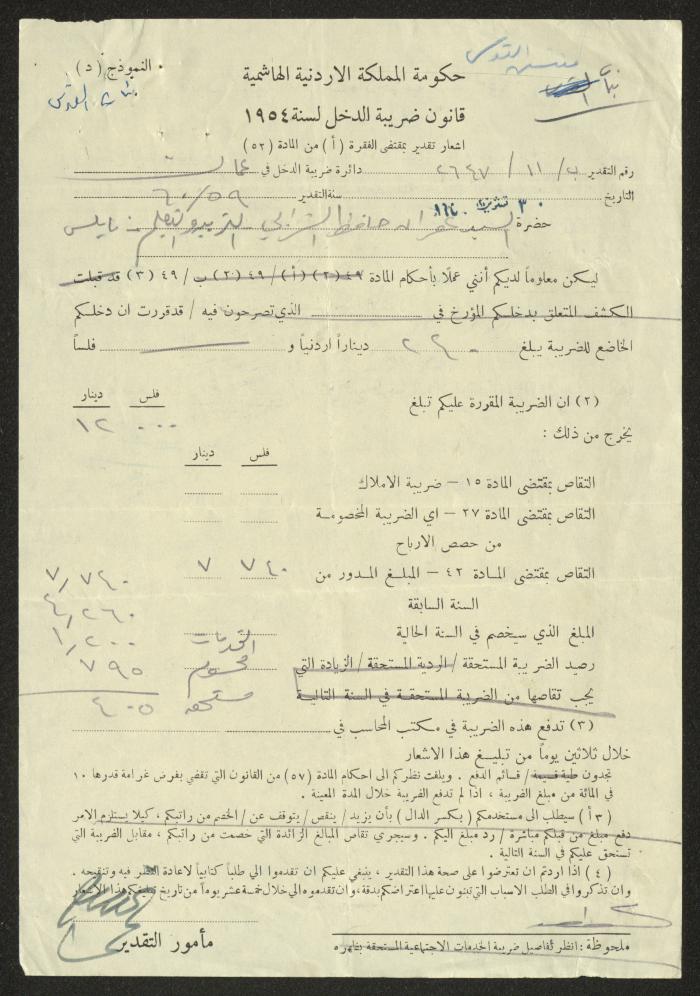 النموذج (د)
حكومة المملكة الاردنية الهاشمية
قانون ضريبة الدخل لسنة ١٩٥٤
اشعار تقدير بمقتضى الفقرة (أ) من المادة (٥٢)
رقم التقدير ب/ ١١ / ٢٦٤٧ دائرة ضريبة الدخل في
التاريخ ٣٠ سنة التقدير ٦٠/٥٩
حضرة السيد حافظ التربية والتعليم - نابلس
ليكن معلوماً لديكم أنني عملاً بأحكام المادة ٤٩ (٢) (أ) / ٤٩ (٢) ب / ٤٩ (٣) قد قبلت
الكشف المتعلق بدخلكم المؤرخ في الذي تصرحون فيه / قد قررت ان دخلكم
الخاضع للضريبة يبلغ ٢٤٠ ديناراً اردنياً و فلساً
(٢) ان الضريبة المقررة عليكم تبلغ فلس دينار
٠٠٠ ١٢
يخرج من ذلك :
فلس دينار
التقاص بمقتضى المادة ١٥ – ضريبة الاملاك
التقاص بمقتضى المادة ٢٧ – اي الضريبة المخصومة
من حصص الارباح
التقاص بمقتضى المادة ٤٢ – المبلغ المدور من ٧٤٠ ٧ ٧/٧٤٠
السنة السابقة ٤/٢٦٠
المبلغ الذي سيخصم في السنة الحالية الخدمات ١/٢٠٠
رصيد الضريبة المستحقة / الردية المستحقة / الزيادة التي محسوم ٧٩٥
يجب تقاصها من الضريبة المستحقة في السنة التالية مستحقه ٤٠٥
(٣) تدفع هذه الضريبة في مكتب المحاسب في
خلال ثلاثين يوماً من تبليغ هذا الاشعار
تجدون طية قسيمة / قسائم الدفع . ويلفت نظركم الى احكام المادة (٥٧) من القانون التي تقضي بفرض غرامة قدرها ١٠
في المائة من مبلغ الضريبة ، اذا لم تدفع الضريبة خلال المدة المعينة .
(٣ أ) سيطلب الى مستخدمكم (بكسر الدال) بأن يزيد / ينقص / يتوقف عن / الخصم من راتبكم ، كيلا يستلزم الامر
دفع مبلغ من قبلكم مباشرة / رد مبلغ اليكم . وسيجري تقاص المبالغ الزائدة التي خصمت من راتبكم ، مقابل الضريبة التي
تستحق عليكم في السنة التالية .
(٤) اذا اردتم ان تعترضوا على صحة هذا التقدير ، ينبغي عليكم ان تقدموا الي طلباً كتابياً لاعادة النظر فيه وتنقيحه .
وان تذكروا في الطلب الاسباب التي تبنون عليها اعتراضكم بدقة ، وان تقدموه الي خلال خمسة عشر يوماً من تاريخ تبليغكم هذا الاشعار
مأمور التقدير
ملحوظة : انظر تفاصيل ضريبة الخدمات الاجتماعية المستحقة بظهره